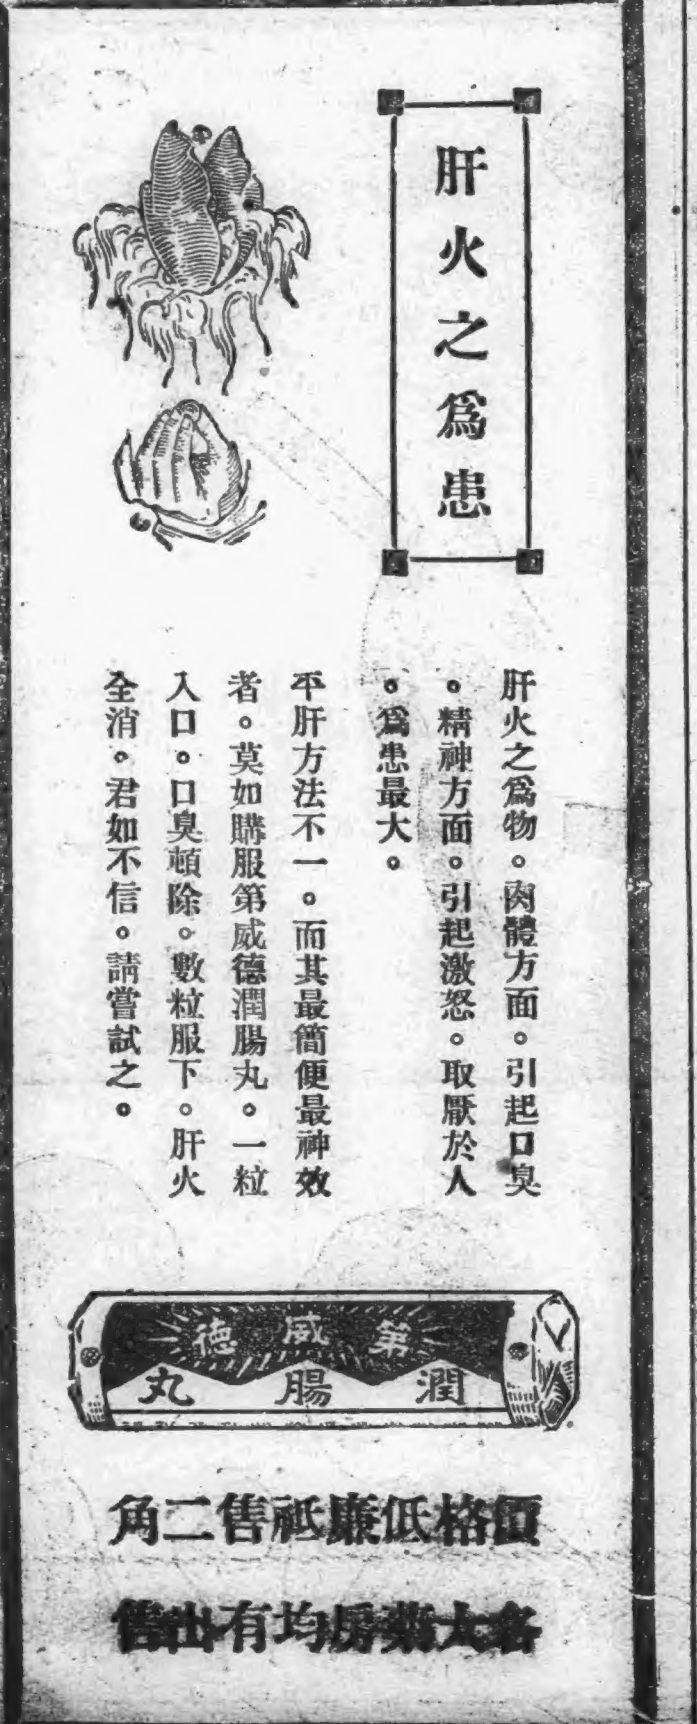 肝火之爲患
肝火之爲物。肉體方面。引起口臭
。精神方面。引起激怒。取厭於人
。爲患最大。
平肝方法不一。而其最簡便最神效
者。莫如購服第威德潤腸丸。一粒
入口。口臭頓除。數粒服下。肝火
全消。君如不信。請嘗試之。
第威德
潤腸丸
價格低廉祗售二角
各大藥房均有出售